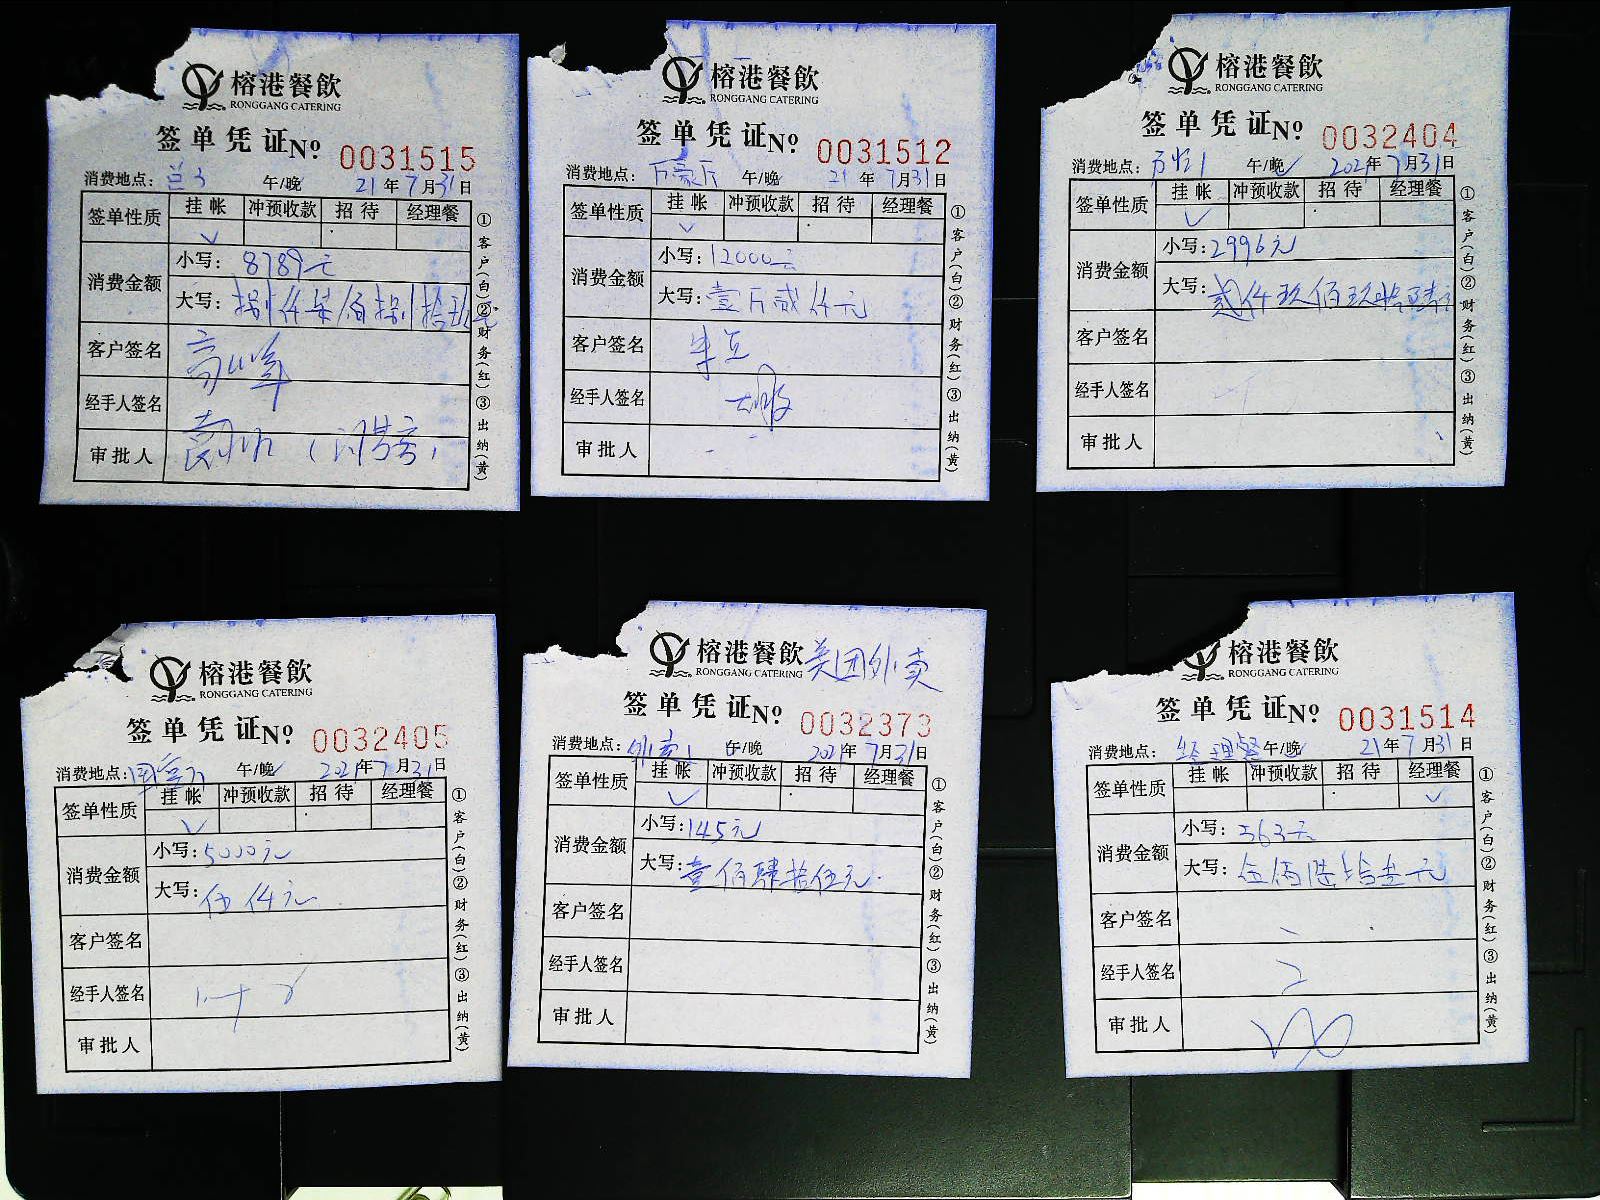 榕港餐飲
RONGGANG CATERING
签单凭证 Nº 0031515
消费地点： 午/晚 21年7月31日
签单性质 挂帐 冲预收款 招待 经理餐
✓
消费金额 小写：8789元
大写：捌仟柒佰捌拾
客户签名 高峰
经手人签名
审批人
①客户(白)②财务(红)③出纳(黄)
榕港餐飲
RONGGANG CATERING
签单凭证 Nº 0031512
消费地点： 午/晚 21年7月31日
签单性质 挂帐 冲预收款 招待 经理餐
✓
消费金额 小写：12000元
大写：壹万贰仟元
客户签名
经手人签名
审批人
①客户(白)②财务(红)③出纳(黄)
榕港餐飲
RONGGANG CATERING
签单凭证 Nº 0032404
消费地点： 午/晚✓ 2021年7月31日
签单性质 挂帐 冲预收款 招待 经理餐
✓
消费金额 小写：2996元
大写：贰仟玖佰玖拾陆元
客户签名
经手人签名
审批人
①客户(白)②财务(红)③出纳(黄)
榕港餐飲
RONGGANG CATERING
签单凭证 Nº 0032405
消费地点： 午/晚✓ 2021年7月31日
签单性质 挂帐 冲预收款 招待 经理餐
✓
消费金额 小写：5000元
大写：伍仟元
客户签名
经手人签名
审批人
①客户(白)②财务(红)③出纳(黄)
榕港餐飲 美团外卖
RONGGANG CATERING
签单凭证 Nº 0032373
消费地点：外卖1 午/晚 2021年7月31日
签单性质 挂帐 冲预收款 招待 经理餐
✓
消费金额 小写：145元
大写：壹佰肆拾伍元
客户签名
经手人签名
审批人
①客户(白)②财务(红)③出纳(黄)
榕港餐飲
RONGGANG CATERING
签单凭证 Nº 0031514
消费地点：经理餐 午/晚✓ 21年7月31日
签单性质 挂帐 冲预收款 招待 经理餐
✓
消费金额 小写：563元
大写：伍佰陆拾叁元
客户签名
经手人签名
审批人
①客户(白)②财务(红)③出纳(黄)